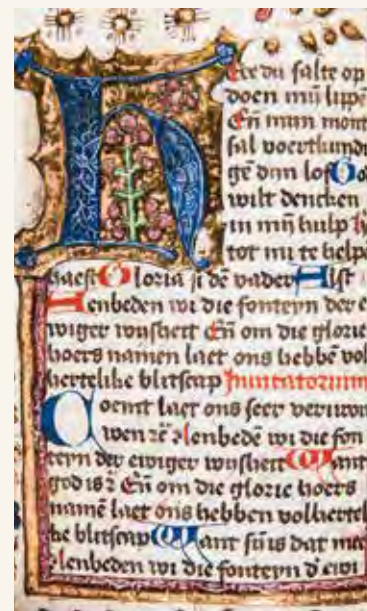 Here du salte op
doen mij lipē
Eñ mijn mont
sal voertkundi
gē dijn lof God
wilt dencken
in mij hulp h
tot mi te helpē
haest Gloria si dē vader Als
Aenbeden wi die fonteyn der e
wiger wijsheit Eñ om die glorie
hoers namen laet ons hebbē vol
hertelike blitscap Inuitatorium
Coemt laet ons seer
wen Aenbedē wi die fon
teyn der ewiger wijsheit Want
god is Eñ om die glorie hoers
namē laet ons hebben volhertel
ke blitscap Want sij is dat
Aenbeden wi die fonteyn d' ewi